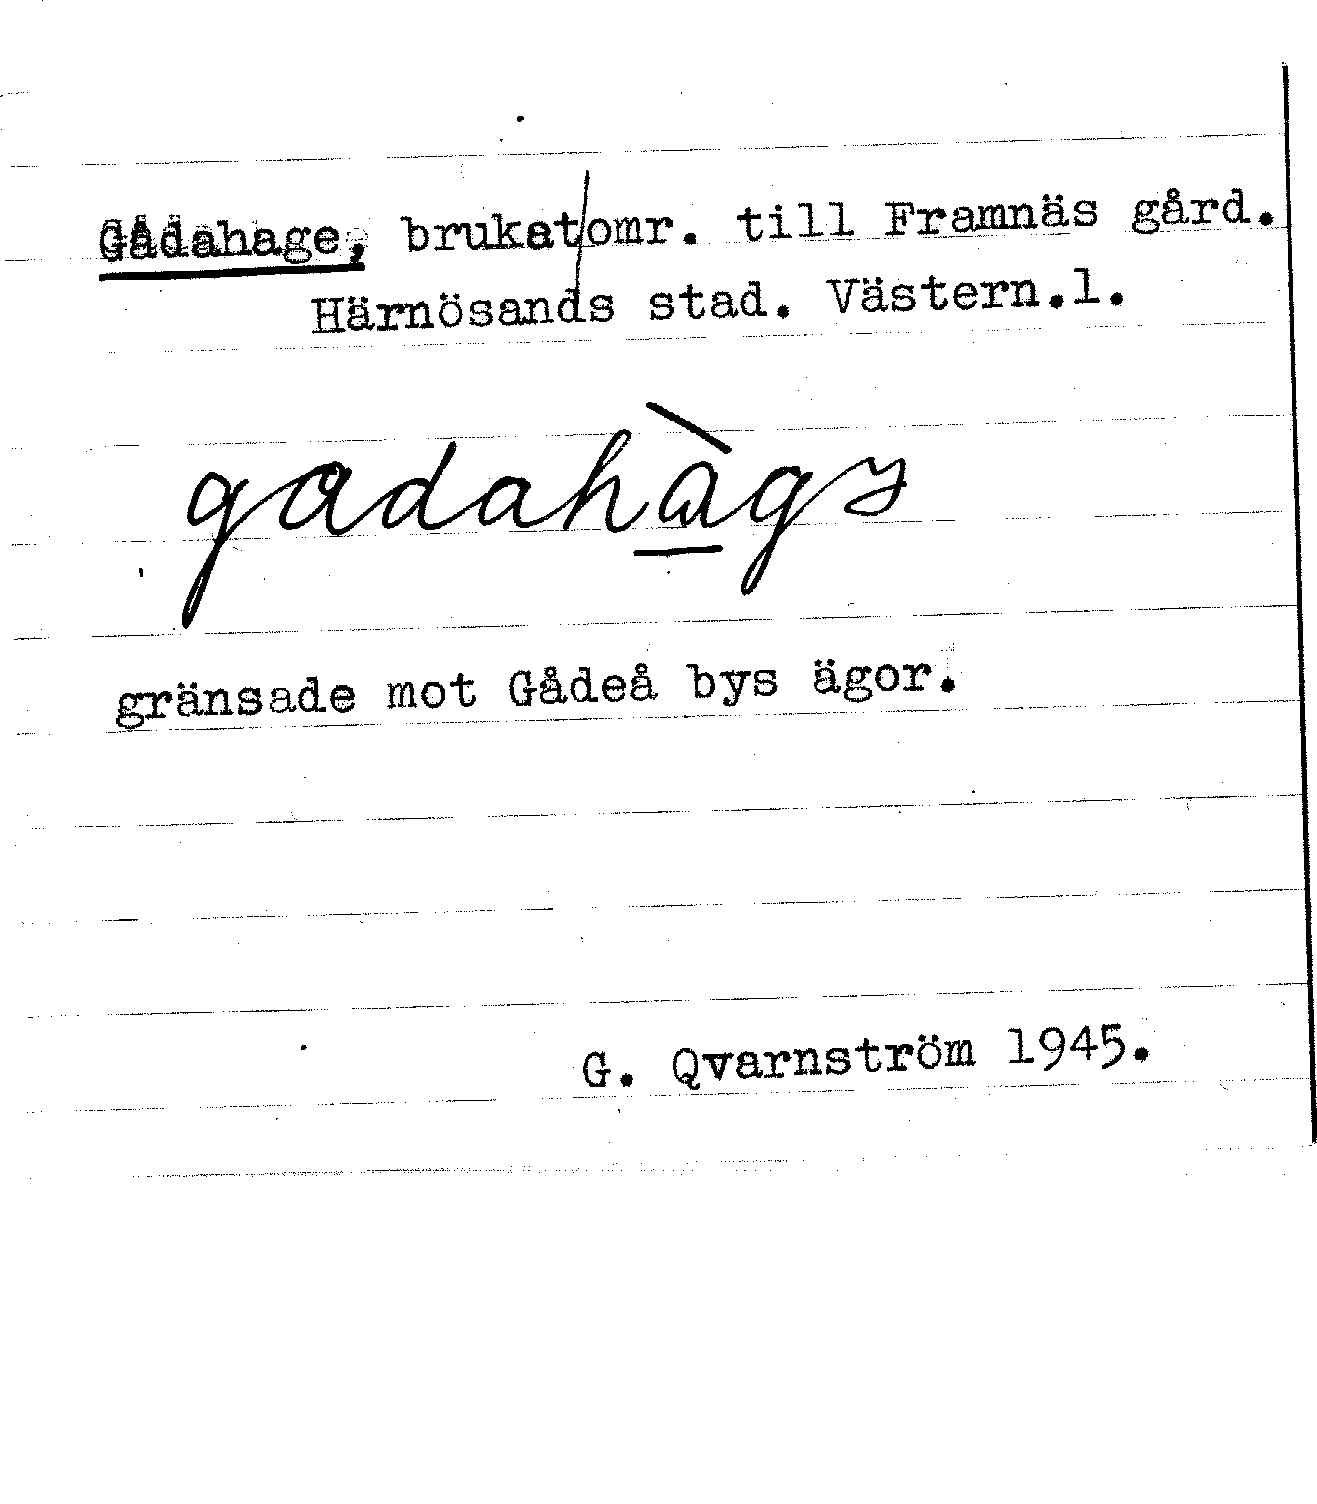 Gådahage, brukat/omr. till Framnäs gård.
Härnösands stad. Västern.l.
gadahàgs
gränsade mot Gådeå bys ägor.
G. Qvarnström 1945.